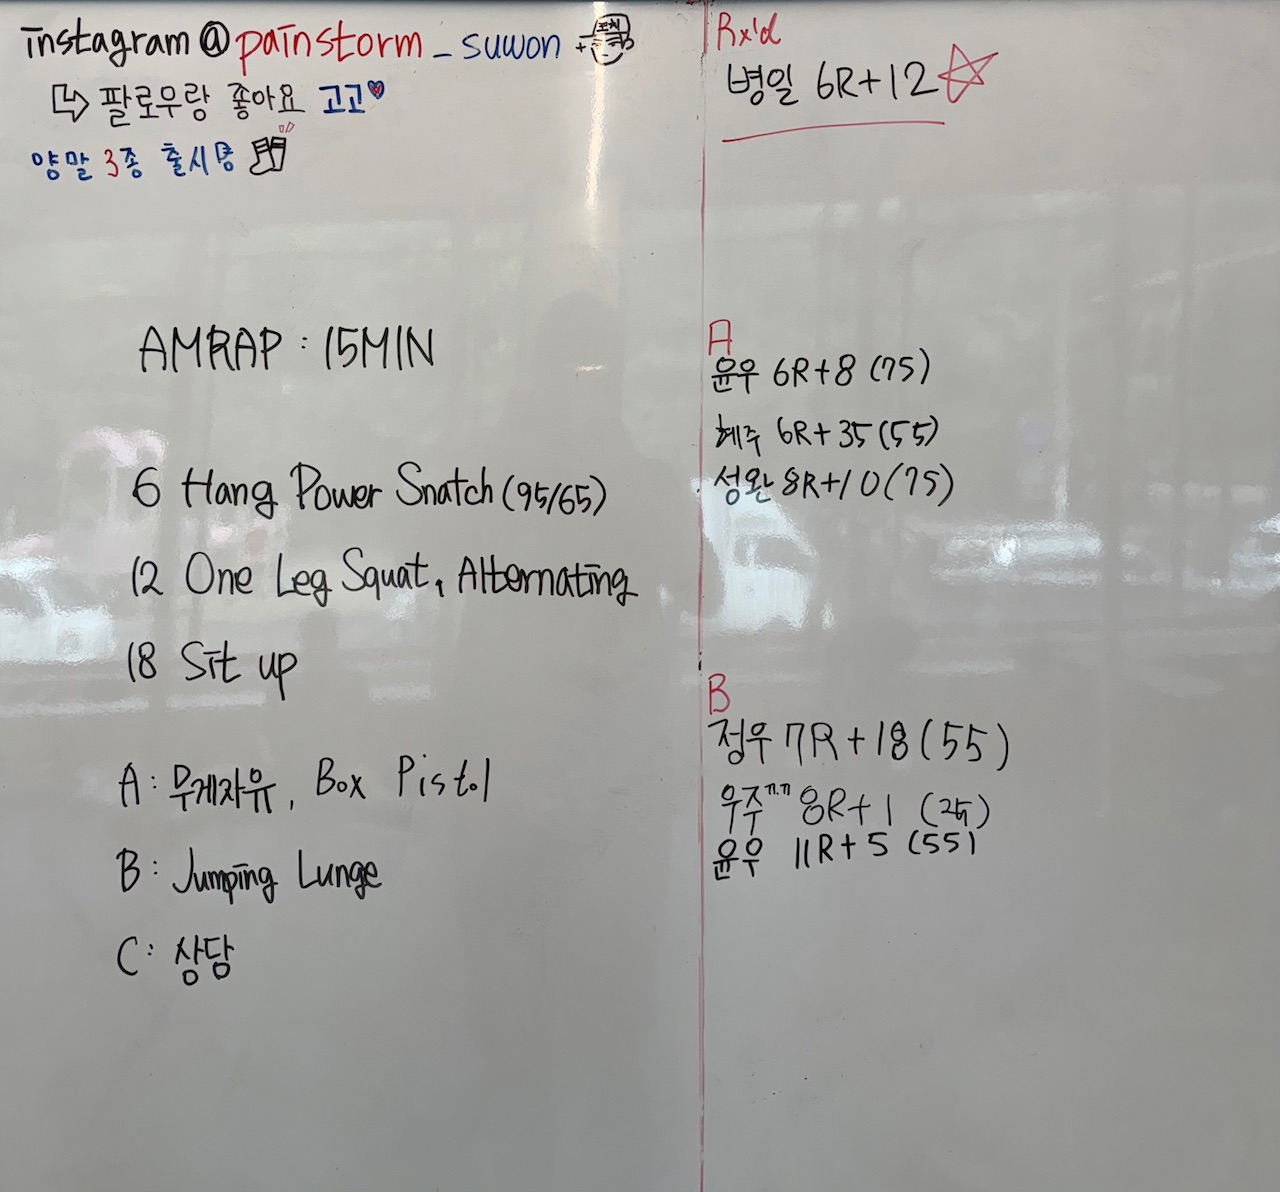 instagram@painstorm_suwon
팔로우랑 좋아요 고고
양말 3종 출시용
AMRAP : 15MIN
6 Hang Power Snatch (95/65)
12 One Leg Squat, Alternating
18 Sit up
A : 무게자유, Box Pistol
B : Jumping Lunge
C : 상담
Rx'd
병일 6R+12
A
윤우 6R+8 (75)
혜주 6R+35 (55)
성완 8R+10 (75)
B
정우 7R+18 (55)
우주ㄲㄲ 8R+1
윤우 11R+5 (55)